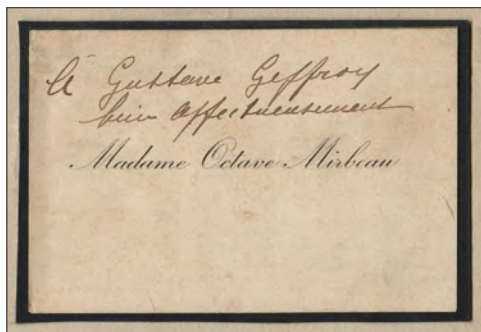 à Gustave Geffroy
bien affectueusement
Madame Octave Mirbeau